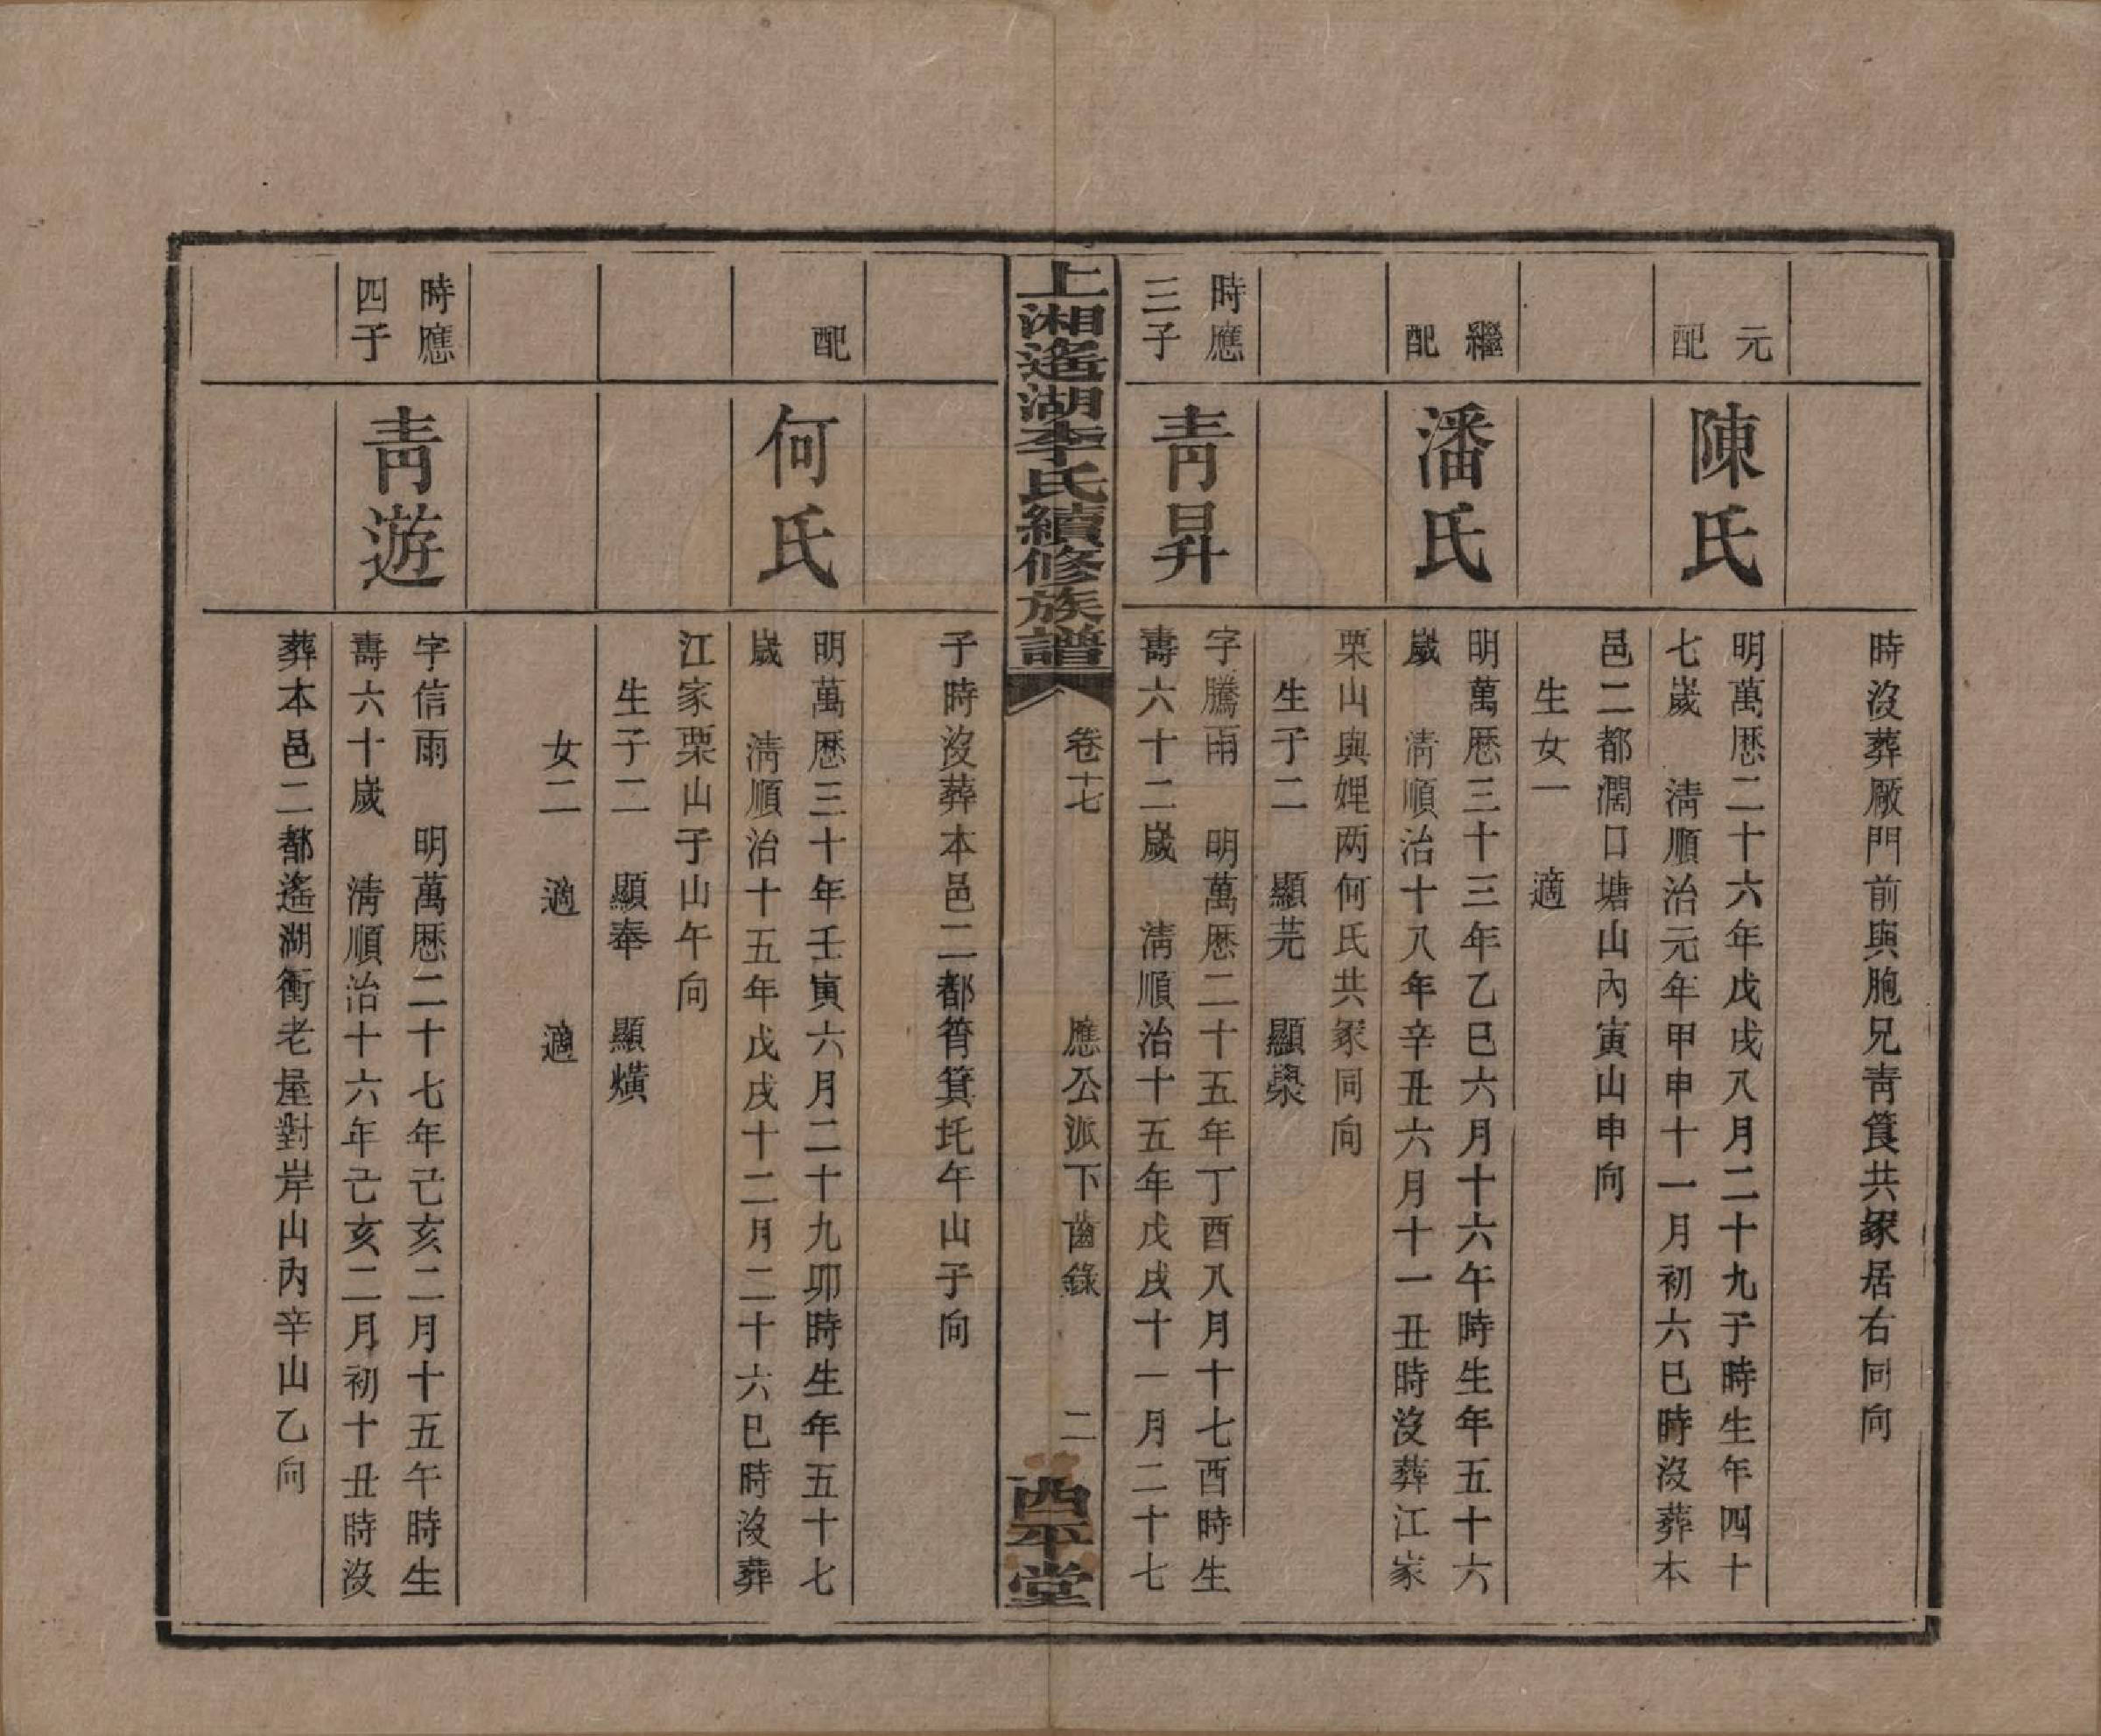 時沒葬厰門前與胞兄靑筤共冢居右同向
元配
陳氏
明萬歴二十六年戊戌八月二十九子時生年四十
七歲　淸順治元年甲申十一月初六巳時沒葬本
邑二都濶口塘山內寅山申向
生女一　適
繼配
潘氏
明萬歴三十三年乙巳六月十六午時生年五十六
歲　淸順治十八年辛丑六月十一丑時沒葬江家
栗山與娌两何氏共冢同向
生子二　顯芫　顯榘
時應三子
靑昇
字騰雨　明萬歴二十五年丁酉八月十七酉時生
壽六十二歲　淸順治十五年戊戌十一月二十七
上湘遙湖李氏續修族譜
卷十七　應公派下齒錄　二
西平堂
子時沒葬本邑二都筲箕圫午山子向
配
何氏
明萬歴三十年壬寅六月二十九卯時生年五十七
歲　淸順治十五年戊戌十二月二十六巳時沒葬
江家栗山子山午向
生子二　顯奉　顯熿
女二　適　適
時應四子
靑遊
字信雨　明萬歴二十七年己亥二月十五午時生
壽六十歲　淸順治十六年己亥二月初十丑時沒
葬本邑二都遙湖衝老屋對岸山內辛山乙向